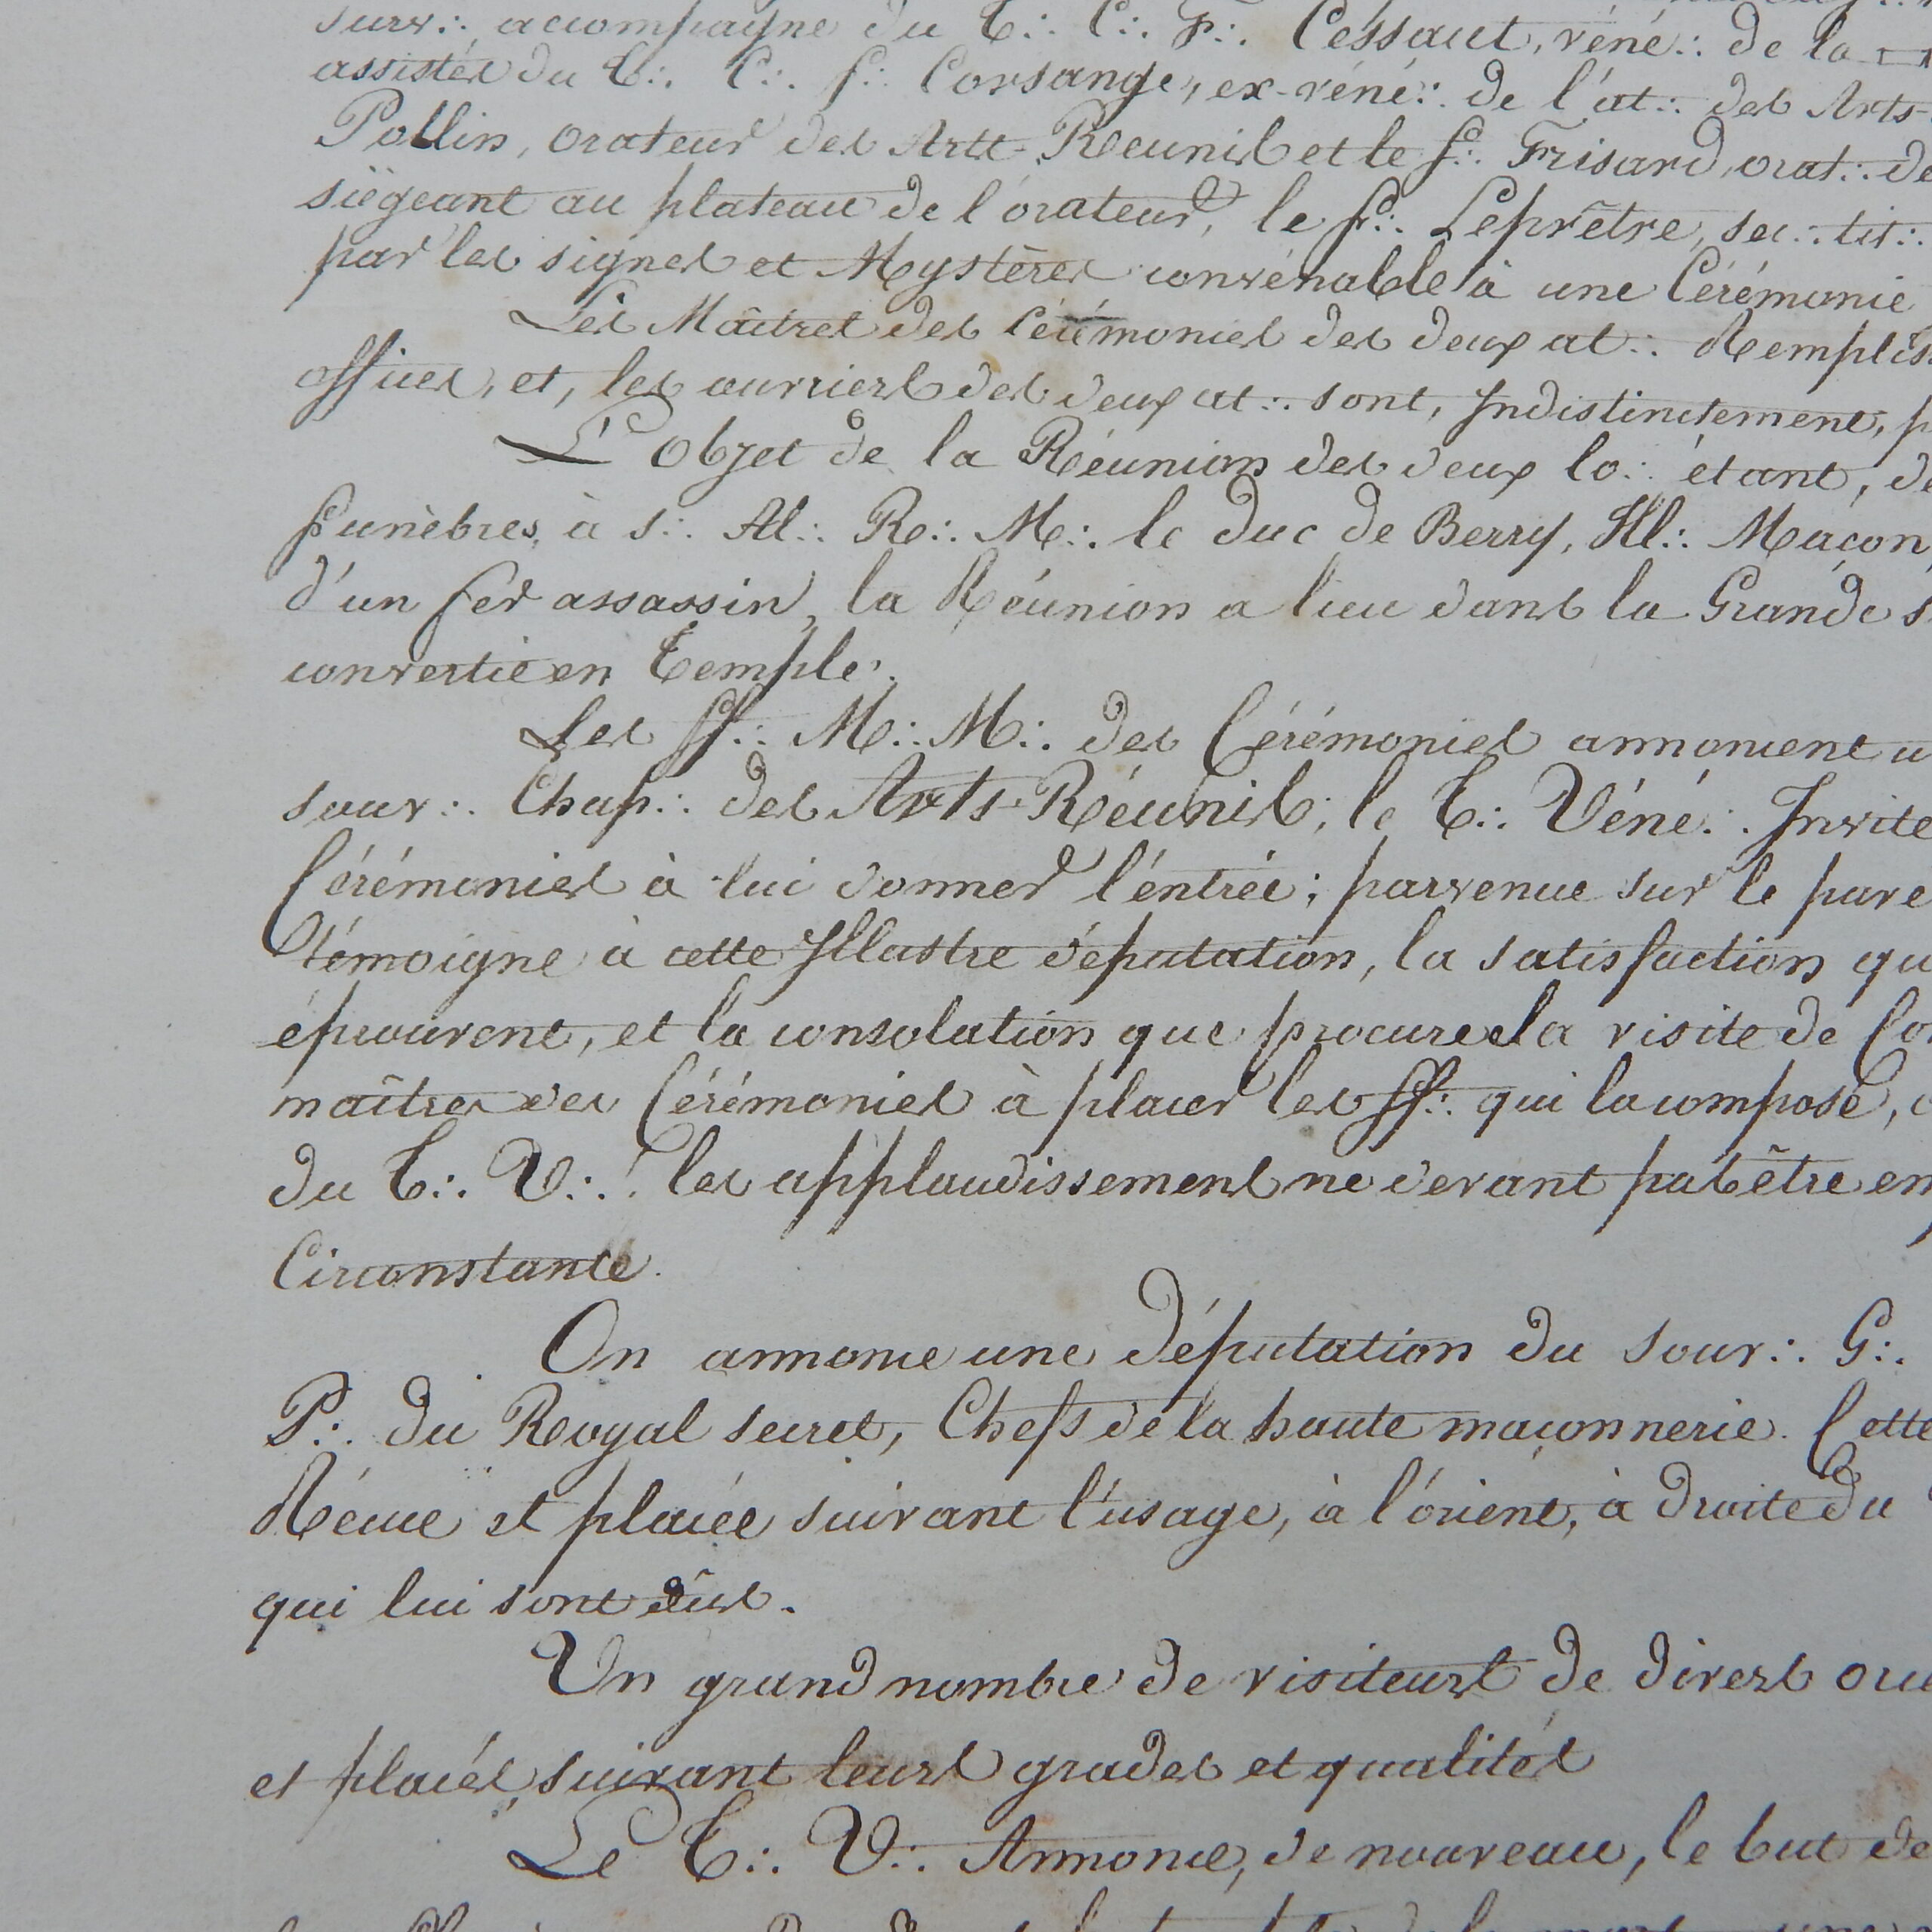 surv∴ accompagné du T∴ C∴ F∴ Cessaut, véné∴ de la
assistés du T∴ C∴ f∴ Corsange, ex-véné∴ de l'at∴ des Arts-
Pollin, orateur des Arts-Réunis et le f∴ Frisard, orat∴ de
siégeant au plateau de l'orateur, le f∴ Leprêtre, sec∴ tit∴
par les signes et Mystères convenable à une Cérémonie
Les Maîtres des Cérémonies des deux at∴ Remplis
offices, et, les ouvriers des deux at∴ sont, Indistinctement, p
L'Objet de la Réunion des deux lo∴ étant, de
funèbres, à s∴ Al∴ Ro∴ M∴ le Duc de Berry, Ill∴ Maçon,
d'un fer assassin, la Réunion a lieu dans la Grande s
convertie en Temple.
Les ff∴ M∴ M∴ des Cérémonies annoncent u
souv∴ Chap∴ des Arts-Réunis; le T∴ Véné∴ Invite
Cérémonies à lui donner l'éntrée; parvenue sur le parv
témoigne à cette Illustre députation, la satisfaction qu
éprouvent, et la consolation que procure la visite de Co
maîtres des Cérémonies à placer les ff∴ qui la compose,
du T∴ V∴ les applaudissements ne devant pas être em
Circonstance.
On annonce une députation du souv∴ G∴
P∴ du Royal secret, Chefs de la haute maçonnerie. Cette
Récue et placée suivant l'usage, à l'orient, à droite du
qui lui sont dûs.
Un grand nombre de visiteurs de divers orie
et placés, suivant leurs grades et qualités
Le T∴ V∴ Annonce, de nouveau, le but de